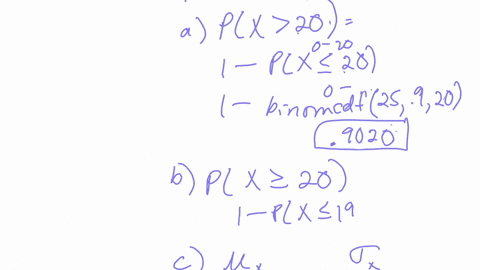 a) P(X > 20) =
0-20
1 - P(X ≤ 20)
0-
1 - binomcdf(25, .9, 20)
.9020
b) P(X ≥ 20)
1-P(X ≤ 19
c) μx σx